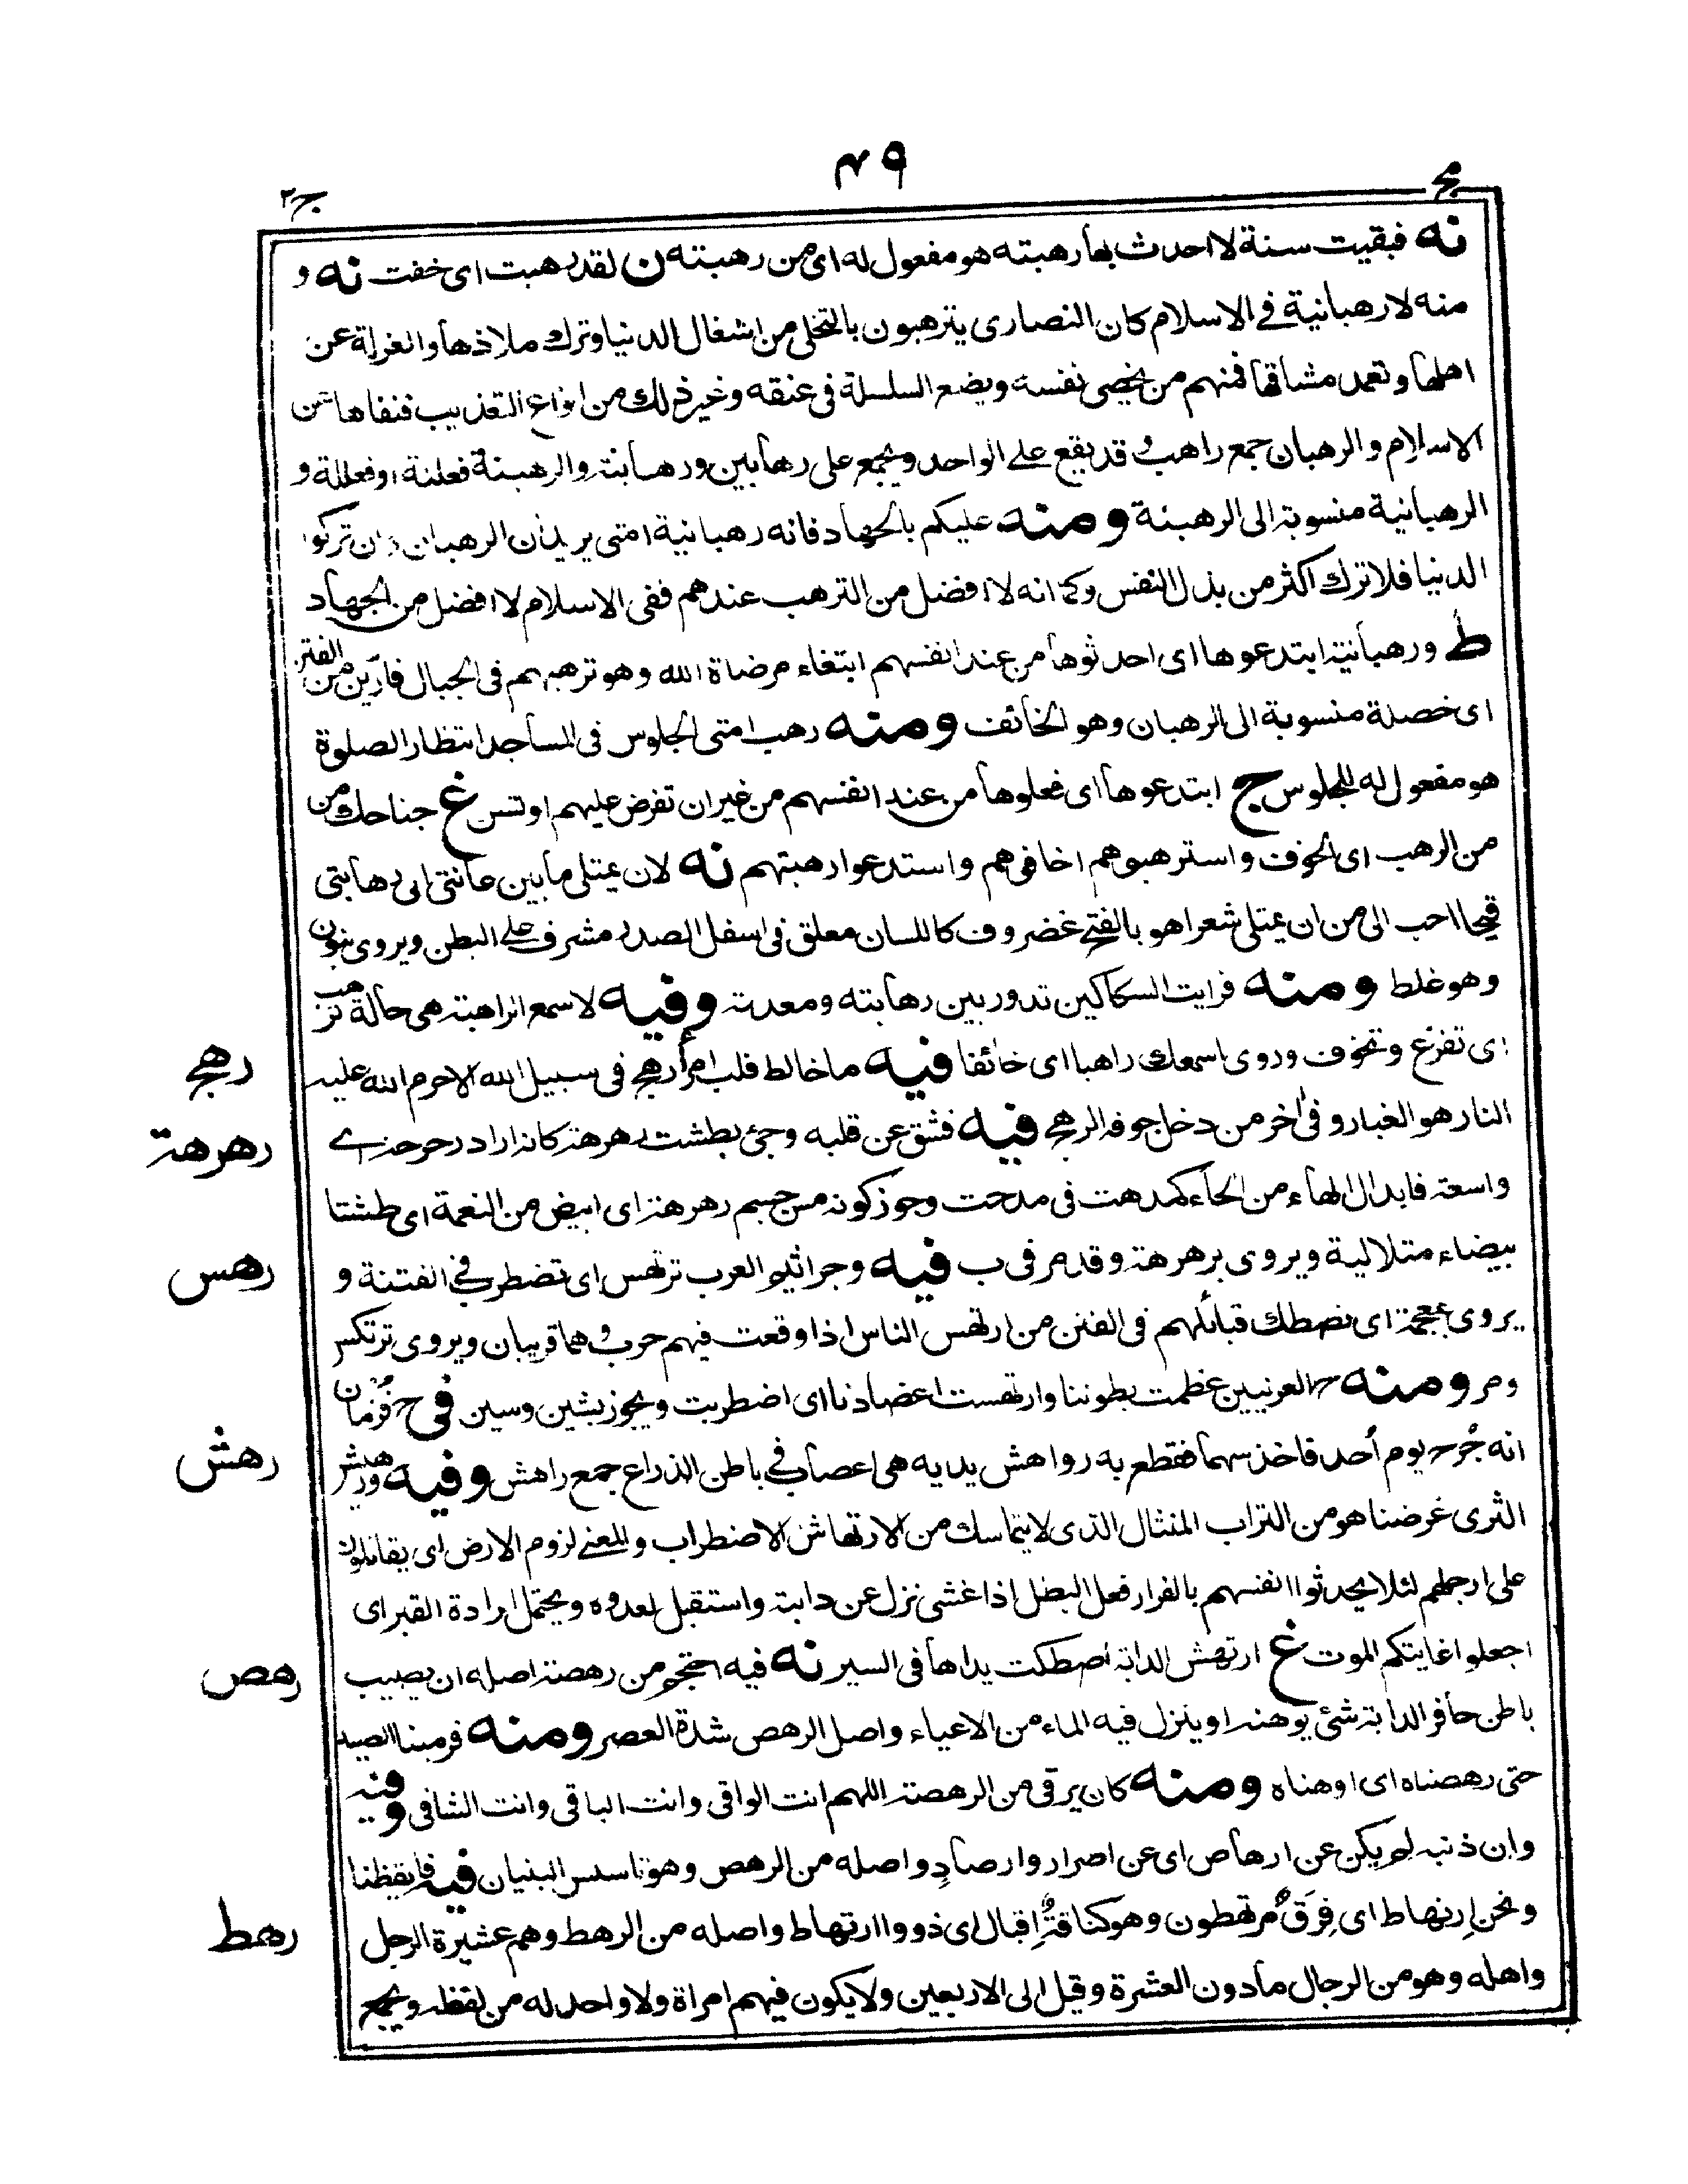 مج
٤٩
ج٢
نه فبقيت سنة لا احدث بها رهبته هو مفعول له اى من رهبته ن لقد رهبت اى خفت نه و
منه لا رهبانية فى الاسلام كان النصارى يترهبون بالتخلى من اشغال الدنيا وترك ملاذها والعزلة عن
اهلها وتعمد مشاقها فمنهم من يخصى نفسه ويضع السلسلة فى عنقه وغير ذلك من انواع التعذيب فنفاها عن
الاسلام والرهبان جمع راهب وقد يقع على الواحد ويجمع على رهابين ورهابنة والرهبنة فعلنة او فعللة و
الرهبانية منسوبة الى الرهبنة ومنه عليكم بالجهاد فانه رهبانية امتى يريد ان الرهبان وان تركوا
الدنيا فلا ترك اكثر من بذل النفس وكما انه لا افضل من الترهب عندهم ففى الاسلام لا افضل من الجهاد
ط ورهبانية ابتدعوها اى احدثوها من عند انفسهم ابتغاء مرضاة الله وهو ترهبهم فى الجبال فارّين من الفتن
اى خصلة منسوبة الى الرهبان وهو الخائف ومنه رهب امتى الجلوس فى المساجد انتظار الصلوة
هو مفعول له للجلوس ج ابتدعوها اى فعلوها من عند انفسهم من غير ان تفرض عليهم او تسن غ جناحك من
من الرهب اى الخوف واسترهبوهم اخافوهم واستدعوا رهبتهم نه لان يمتلى ما بين عانتى الى رهابتى
قيحا احب الى من ان يمتلى شعرا هو بالفتح غضروف كاللسان معلق فى اسفل الصدر مشرف على البطن ويروى بنون
وهو غلط ومنه فرايت السكاكين تدور بين رهابته ومعدته وفيه لا سمع الراهبة هى حالة ترهب
اى تفزع وتخوف وروى اسمعك راهبا اى خائفا فيه ما خالط قلب امرأ رهج فى سبيل الله الا حرم الله عليه
رهج
النار هو الغبار وفى اخر من دخل جوفه الرهج فيه فشق عن قلبه وجئ بطشت رهرهة كانه اراد رحرحة اے
رهرهة
واسعة فابدال الهاء من الحاء كمدهت فى مدحت وجوز كونه من جسم رهرهة اى ابيض من النعمة اى طشتا
بيضاء متلالية ويروى برهرهة وقد مر فى ب فيه وجراثيم العرب ترتهس اى تضطرب فى الفتنة و
رهس
يروى بمعجمة اى تصطك قبائلهم فى الفتن من ارتهس الناس اذا وقعت فيهم حرب وهما قريبان ويروى ترتكس
ومر ومنه ح العرنيين عظمت بطوننا وارتهست اعضادنا اى اضطربت ويجوز بشين وسين فى ح قزمان
انه جُرح يوم اُحد فاخذ سهما فقطع به رواهش يديه هى اعصاب فى باطن الذراع جمع راهش وفيه ورهيش
رهش
الثرى غرضنا هو من التراب المنثال الذى لا يتماسك من الارتهاش الاضطراب والمعنى لزوم الارض اى يقاتلون
على ارجلهم لئلا يحدثوا انفسهم بالفرار فعل البطل اذا غشى نزل عن دابته واستقبل لعدوه ويحتمل ارادة القبر اى
اجعلوا غايتكم الموت غ ارتهش الدابة اصطكت يداها فى السير نه فيه احتجم من رهصة اصله ان يصيب
رهص
باطن حافر الدابة شئ يوهنه او ينزل فيه الماء من الاعياء واصل الرهص شدة العصر ومنه فرمينا الصيد
حتى رهصناه اى اوهناه ومنه كان يرقى من الرهصة اللهم انت الواقى وانت الباقى وانت الشافى وفيه
وان ذنبه لم يكن عن ارهاص اى عن اصرار وارصاد واصله من الرهص وهو تاسيس البنيان فيه فايقظنا
ونحن ارتهاط اى فِرَقٌ مرتهطون وهو كناقةٌ اِقبال اى ذووا ارتهاط واصله من الرهط وهم عشيرة الرجل
رهط
واهله وهو من الرجال مادون العشرة وقيل الى الاربعين ولا يكون فيهم امراة ولا واحد له من لفظه ويجمع